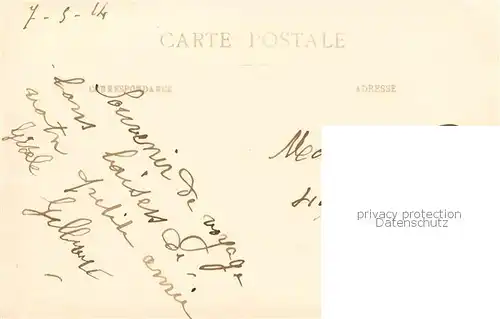 7-5-14
CARTE POSTALE
CORRESPONDANCE
ADRESSE
Souvenir de voyage
bons baisers de
votre petite amie
Gisèle
privacy protection
Datenschutz